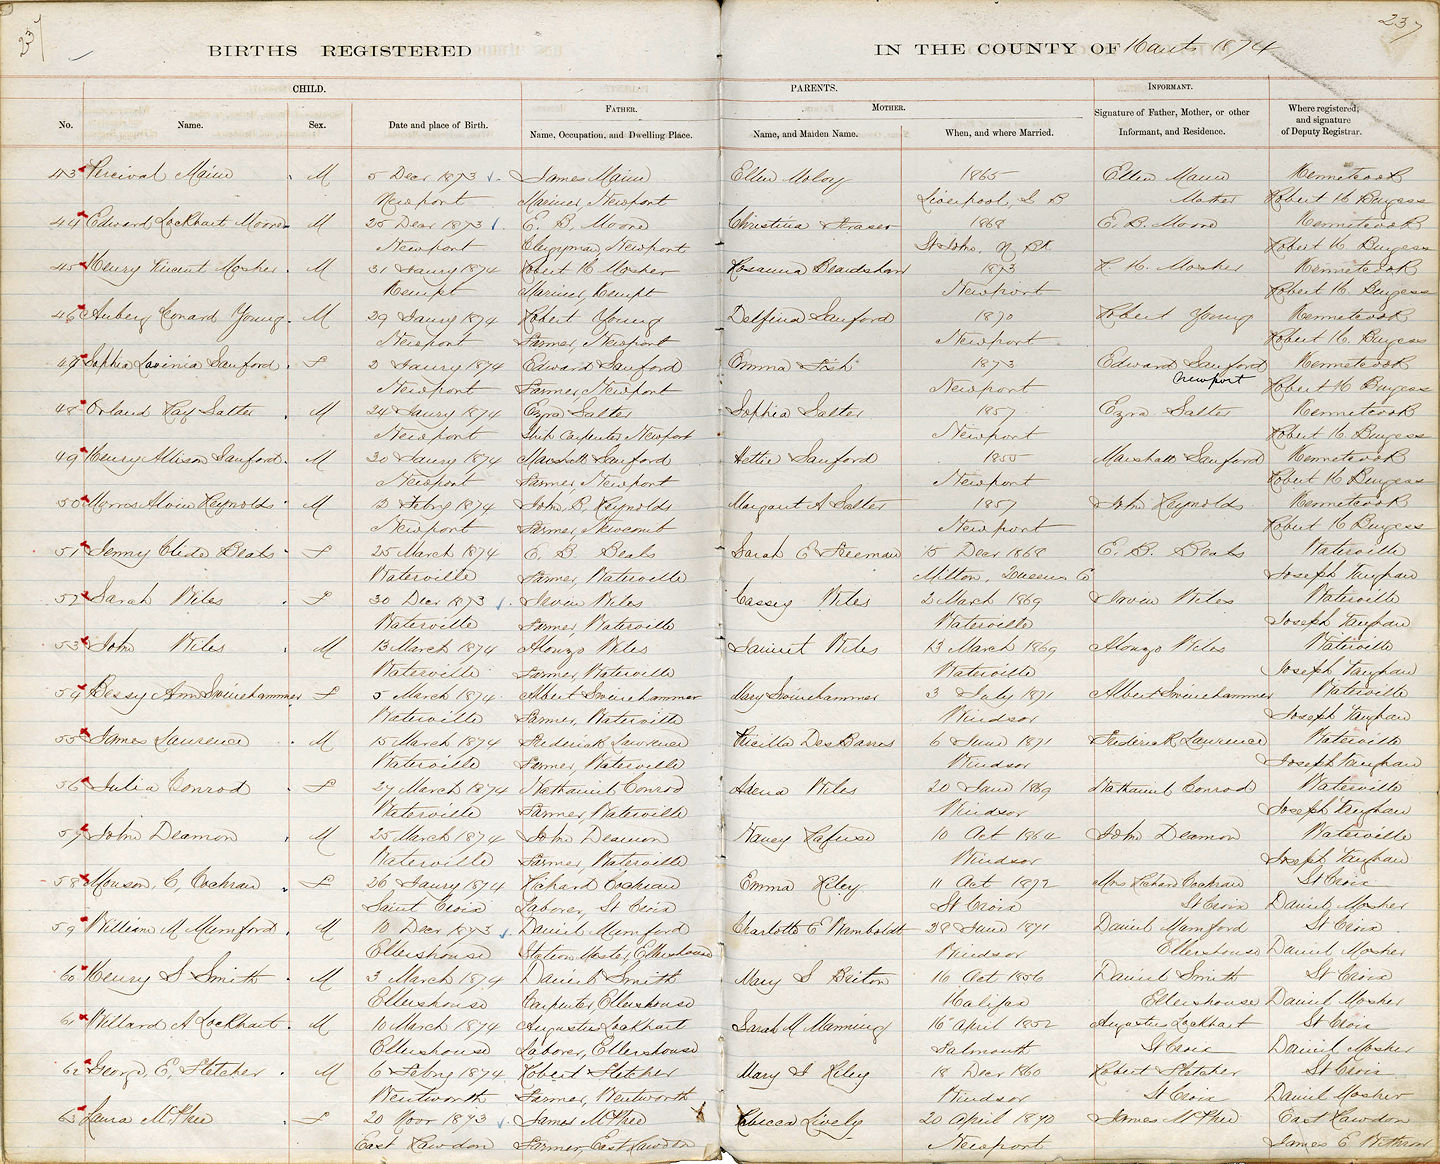 237
237
BIRTHS REGISTERED IN THE COUNTY OF Hants 1874
CHILD. PARENTS. INFORMANT.
FATHER. MOTHER.
No. Name. Sex. Date and place of Birth. Name, Occupation, and Dwelling Place. Name, and Maiden Name. When, and where Married. Signature of Father, Mother, or other Informant, and Residence. Where registered, and signature of Deputy Registrar.
43 Percival Maine M 5 Decr 1873 James Maine Ellen 1865 Ellen Maine Kennetcook
Newport Mariner, Newport Liverpool, G B Mother Robert H. Burgess
44 Edward Lockhart Moore M 25 Decr 1873 E. B. Moore Christina Fraser 1868 E. B. Moore Kennetcook
Newport Clergyman, Newport St Johns, N. Bk Robert H. Burgess
45 Henry Mosher M 31 Janry 1874 Robert H Mosher Rosanna Beaudshaw 1873 R. H. Mosher Kennetcook
Kempt Mariner, Kempt Newport Robert H. Burgess
46 Aubery Conard Young M 29 Janry 1874 Robert Young Delfina Sanford 1870 Robert Young Kennetcook
Newport Farmer, Newport Newport Robert H. Burgess
47 Sophia Lavinia Sanford F 2 Janry 1874 Edward Sanford Emma Fish 1873 Edward Sanford Kennetcook
Newport Farmer, Newport Newport Newport Robert H Burgess
48 Orland Kay Salter M 24 Janry 1874 Ezra Salter Sophia Salter 1857 Ezra Salter Kennetcook
Newport Ship Carpenter Newport Newport Robert H. Burgess
49 Henry Allison Sanford M 20 Janry 1874 Marshall Sanford Hettie Sanford 1855 Marshall Sanford Kennetcook
Newport Farmer, Newport Newport Robert H Burgess
50 Morris Alvin Reynolds M 2 Febry 1874 John B. Reynolds Margaret A Salter 1857 John Reynolds Kennetcook
Newport Farmer, Newcomb Newport Robert H Burgess
51 Jenny Clide Beals F 25 March 1874 E. B. Beals Sarah E Freeman 15 Decr 1868 E. B. Beals Waterville
Waterville Farmer, Waterville Milton, Queens Co Joseph Vaughan
52 Sarah Wiles F 30 Decr 1873 Irvin Wiles Cassey Wiles 2 March 1869 Irvin Wiles Waterville
Waterville Farmer, Waterville Waterville Joseph Vaughan
53 John Wiles M 13 March 1874 Alonzo Wiles Wiles 13 March 1869 Alonzo Wiles Waterville
Waterville Farmer, Waterville Waterville Joseph Vaughan
54 Bessy Ann Swinehammer F 5 March 1874 Albert Swinehammer Mary Swinehammer 3 July 1871 Albert Swinehammer Waterville
Waterville Farmer, Waterville Windsor Joseph Vaughan
55 James Laurence M 15 March 1874 Frederick Lawrence Pricilla DesBarres 6 June 1871 Frederick Laurence Waterville
Waterville Farmer, Waterville Windsor Joseph Vaughan
56 Julia Conrod F 27 March 1874 Nathaniel Conrod Adena Wiles 20 June 1869 Nathaniel Conrod Waterville
Waterville Farmer, Waterville Windsor Joseph Vaughan
57 John Deamon M 25 March 1874 John Deamon Nancy Lafuse 10 Oct 1864 John Deamon Waterville
Waterville Farmer, Waterville Windsor Joseph Vaughan
58 C. Cochran F 26 Janry 1874 Richard Cochran Emma Riley 11 Oct 1872 Mrs Richard Cochran St Croix
Saint Croix Laborer, St Croix St Croix St Croix Daniel Mosher
59 William M Mumford M 10 Decr 1873 Daniel Mumford Charlotte E Wamboldt 28 June 1871 Daniel Mumford St Croix
Ellershouse Station Master, Ellershouse Windsor Ellershouse Daniel Mosher
60 Henry S Smith M 3 March 1874 Daniel Smith Mary S Briton 16 Oct 1856 Daniel Smith St Croix
Ellershouse Carpenter, Ellershouse Halifax Ellershouse Daniel Mosher
61 Willard A Lockhart M 10 March 1874 Augustus Lockhart Sarah M Manning 16 April 1852 Augustus Lockhart St Croix
Ellershouse Laborer, Ellershouse Falmouth St Croix Daniel Mosher
62 George E. Fletcher M 6 Febry 1874 Robert Fletcher Mary J Riley 18 Decr 1860 Robert Fletcher St Croix
Wentworth Farmer, Wentworth Windsor St Croix Daniel Mosher
63 Laura McPhee F 20 Novr 1873 James McPhee Rebecca Lively 20 April 1870 James McPhee East Rawdon
East Rawdon Farmer, East Rawdon Newport James E